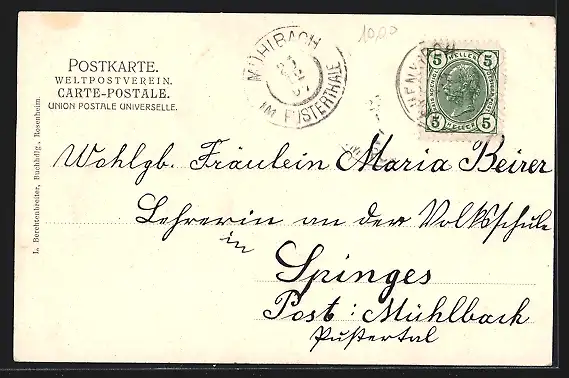 POSTKARTE.
WELTPOSTVEREIN.
CARTE-POSTALE.
UNION POSTALE UNIVERSELLE.
L. Berchtenbreiter, Buchhdlg., Rosenheim.
1000
MÜHLBACH
IM PUSTERTHALE
5 HELLER 5
5 HELLER 5
Wohlgb. Fräulein Maria Beirer
Lehrerin an der Volksschule
in
Spinges
Post: Mühlbach
Pustertal